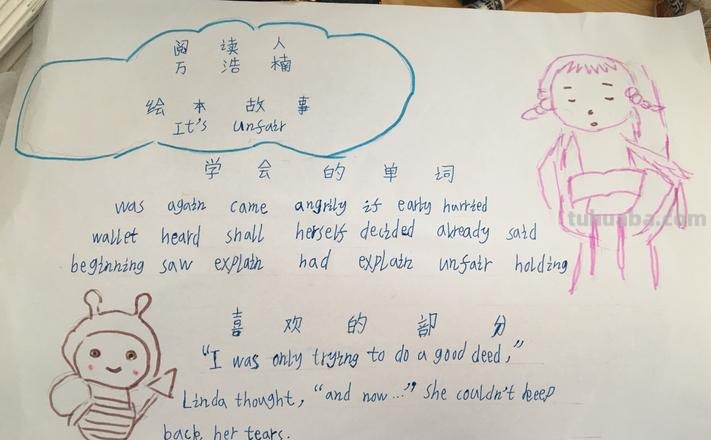 阅读人
万浩楠
绘本故事
It's unfair
学会的单词
was again came angrily if early hurried
wallet heard shall herself decided already said
beginning saw explain had explain unfair holding
tuhunba.com
喜欢的部分
"I was only trying to do a good deed,"
Linda thought, "and now..." She couldn't keep
back her tears.